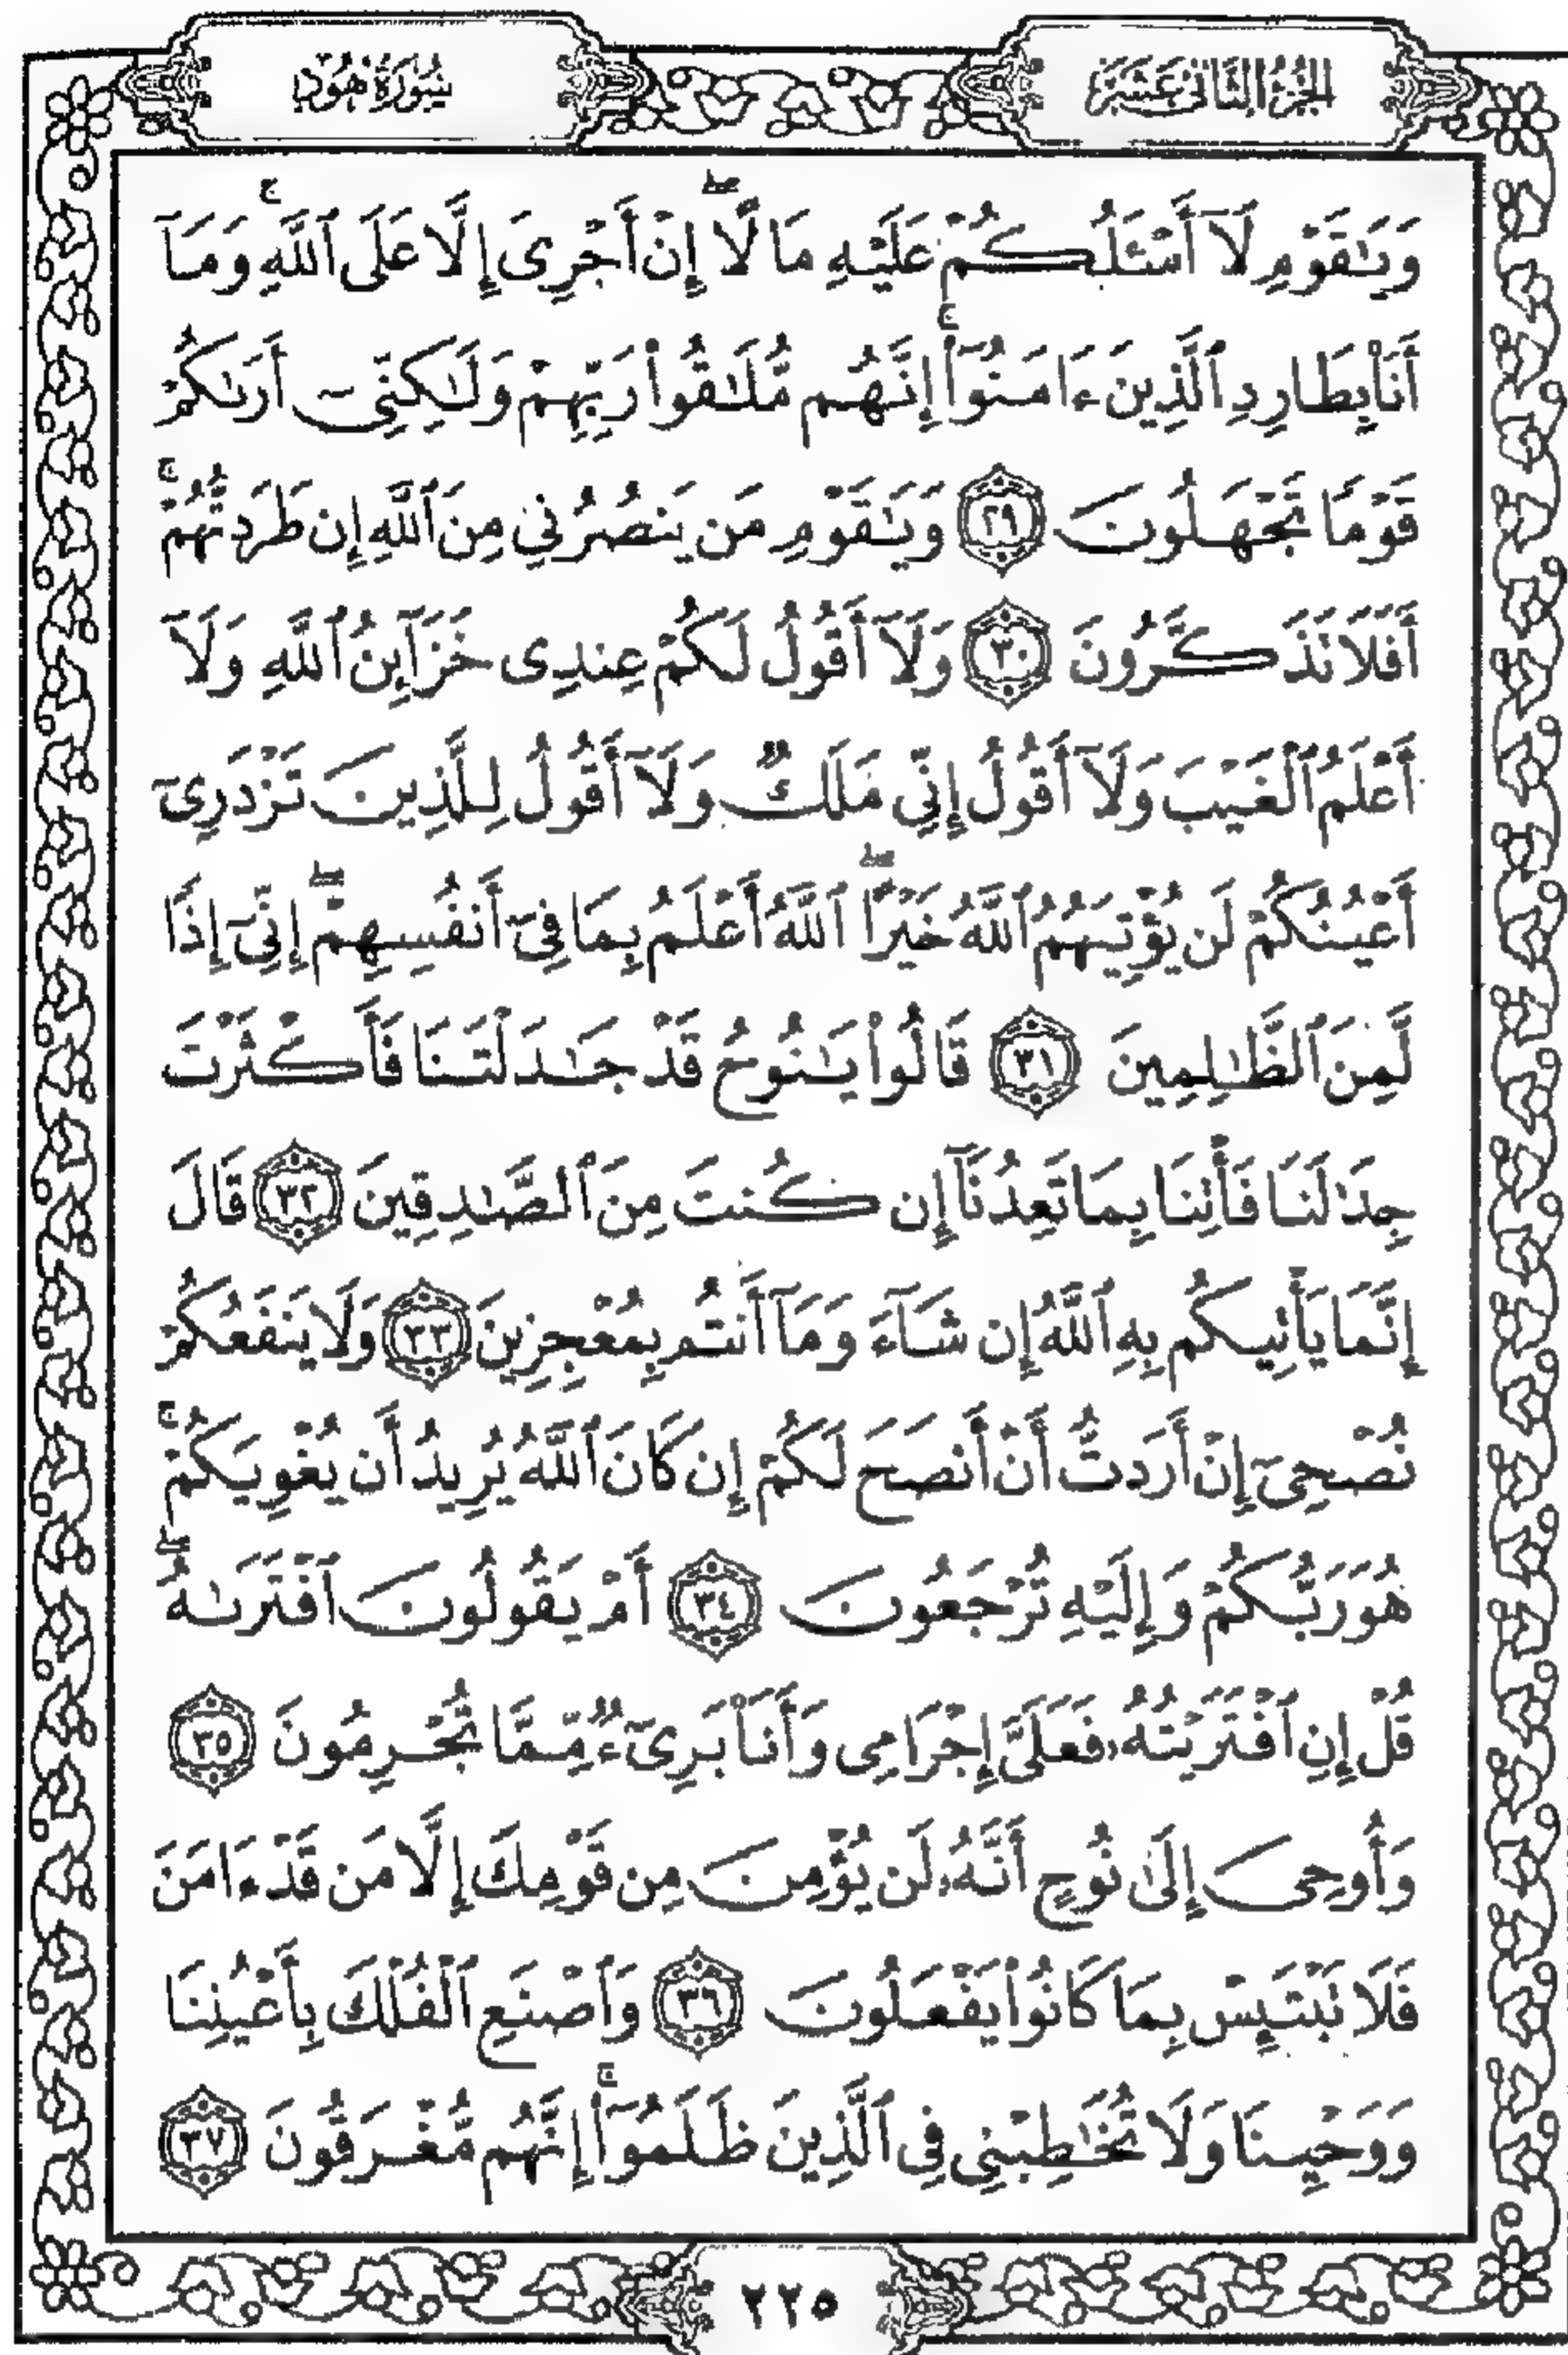 الجزء الثاني عشر
سورة هود
وَيَٰقَوْمِ لَآ أَسْـَٔلُكُمْ عَلَيْهِ مَالًا ۖ إِنْ أَجْرِىَ إِلَّا عَلَى ٱللَّهِ ۚ وَمَآ
أَنَا۠ بِطَارِدِ ٱلَّذِينَ ءَامَنُوٓا۟ ۚ إِنَّهُم مُّلَٰقُوا۟ رَبِّهِمْ وَلَٰكِنِّىٓ أَرَىٰكُمْ
قَوْمًا تَجْهَلُونَ ٢٩ وَيَٰقَوْمِ مَن يَنصُرُنِي مِنَ ٱللَّهِ إِن طَرَدتُّهُمْ ۚ
أَفَلَا تَذَكَّرُونَ ٣٠ وَلَآ أَقُولُ لَكُمْ عِندِى خَزَآئِنُ ٱللَّهِ وَلَآ
أَعْلَمُ ٱلْغَيْبَ وَلَآ أَقُولُ إِنِّي مَلَكٌ وَلَآ أَقُولُ لِلَّذِينَ تَزْدَرِىٓ
أَعْيُنُكُمْ لَن يُؤْتِيَهُمُ ٱللَّهُ خَيْرًا ۖ ٱللَّهُ أَعْلَمُ بِمَا فِىٓ أَنفُسِهِمْ ۖ إِنِّىٓ إِذًا
لَّمِنَ ٱلظَّٰلِمِينَ ٣١ قَالُوا۟ يَٰنُوحُ قَدْ جَٰدَلْتَنَا فَأَكْثَرْتَ
جِدَٰلَنَا فَأْتِنَا بِمَا تَعِدُنَآ إِن كُنتَ مِنَ ٱلصَّٰدِقِينَ ٣٢ قَالَ
إِنَّمَا يَأْتِيكُم بِهِ ٱللَّهُ إِن شَآءَ وَمَآ أَنتُم بِمُعْجِزِينَ ٣٣ وَلَا يَنفَعُكُمْ
نُصْحِىٓ إِنْ أَرَدتُّ أَنْ أَنصَحَ لَكُمْ إِن كَانَ ٱللَّهُ يُرِيدُ أَن يُغْوِيَكُمْ ۚ
هُوَ رَبُّكُمْ وَإِلَيْهِ تُرْجَعُونَ ٣٤ أَمْ يَقُولُونَ ٱفْتَرَىٰهُ ۖ
قُلْ إِنِ ٱفْتَرَيْتُهُۥ فَعَلَىَّ إِجْرَامِى وَأَنَا۠ بَرِىٓءٌ مِّمَّا تُجْرِمُونَ ٣٥
وَأُوحِىَ إِلَىٰ نُوحٍ أَنَّهُۥ لَن يُؤْمِنَ مِن قَوْمِكَ إِلَّا مَن قَدْ ءَامَنَ
فَلَا تَبْتَئِسْ بِمَا كَانُوا۟ يَفْعَلُونَ ٣٦ وَٱصْنَعِ ٱلْفُلْكَ بِأَعْيُنِنَا
وَوَحْيِنَا وَلَا تُخَٰطِبْنِى فِى ٱلَّذِينَ ظَلَمُوٓا۟ ۚ إِنَّهُم مُّغْرَقُونَ ٣٧
٢٢٥